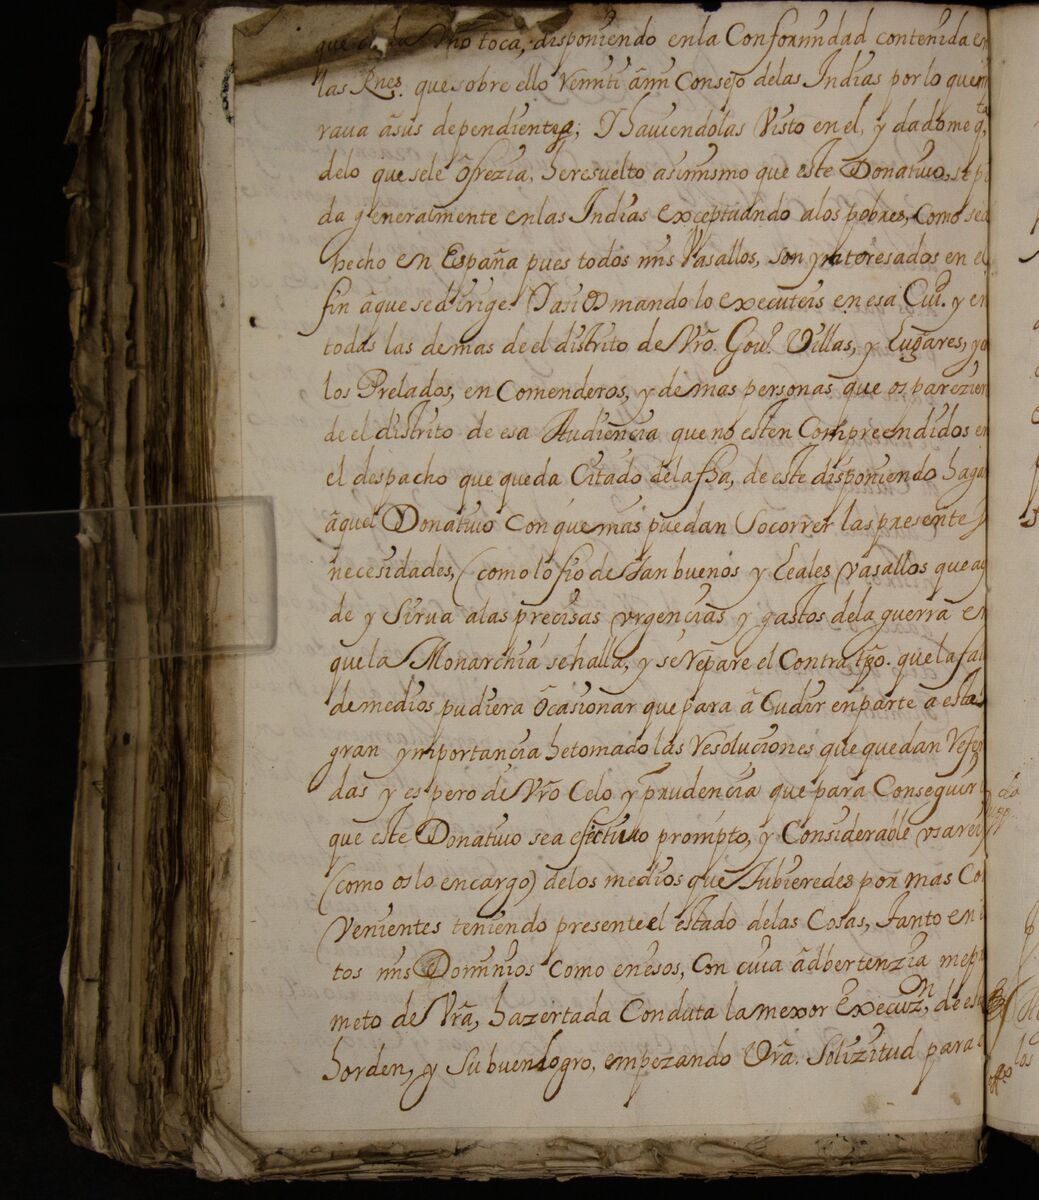 que a la Vrõ toca, disponiendo enla Conformidad contenida en
las Rnes. que sobre ello Vemiti âmi Consejo delas Indias por lo que
raua âsus dependientes; Y hauiendolas Visto en el, y dadome q,ta
delo que sele ôfrezia, he resuelto asimismo que este Donatiuo, se pi
da generalmente enlas Indias exceptuando alos pobres, como se a
hecho en España pues todos mis Vasallos, son ynteresados en el
fin âque se dirige. Y asi Os mando lo executeis en esa Ciu.d y en
todas las demas de el distrito de Vrõ. Gou.o Villas, y Lugares, y a
los Prelados, en Comenderos, y demas personas que os parezien
de el distrito de esa Audiencia que no esten Compreendidos en
el despacho que queda Citado dela fha, de este disponiendo hagan
âquel Donatiuo Con que mas puedan Socorrer las presentes
necesidades, (como lo fio de tan buenos y Leales Vasallos que ay
de y Sirua alas precisas vrgencias y gastos dela guerra en
que la Monarchia se halla, y se Repare el Contra tpo. que la fal
de medios pudiera ôcasionar que para â Cudir en parte a esta
gran ymportancia he tomado las Resoluciones que quedan Refer
das y espero de Vrõ Celo y prudencia que para Conseguir
que este Donatiuo sea efectiuo prompto, y Considerable vsareis
(como os lo encargo) delos medios que tubieredes por mas Con
Venientes teniendo presente el estado delas Cosas, tanto en es
tos mis Dominios Como en esos, Con cuia âdbertenzia me pro
meto de Vrã, hazertada Conduta la mexor Execuz.on, de esta
horden, y Su buen logro, empezando Vrã. Solizitud para